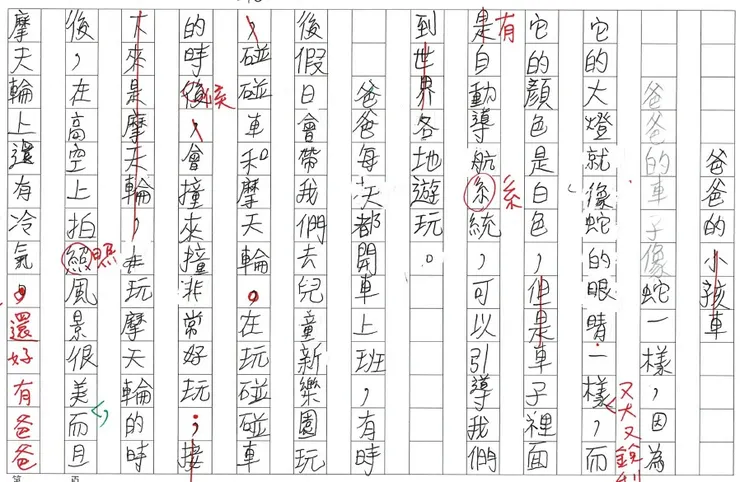 爸爸的小孩車
爸爸的車子像蛇一樣，因為
它的大燈就像蛇的眼睛一樣，而
又大又銳
它的顏色是白色，但是車子裡面
有
是自動導航系統，可以引導我們
系
到世界各地遊玩。
爸爸每天都開車上班，有時
後假日會帶我們去兒童新樂園玩
，碰碰車和摩天輪。在玩碰碰車
候
的時後，會撞來撞非常好玩；接
下來是摩天輪，玩摩天輪的時
照
後，在高空上拍照風景很美而且
摩天輪上還有冷氣。還好有爸爸